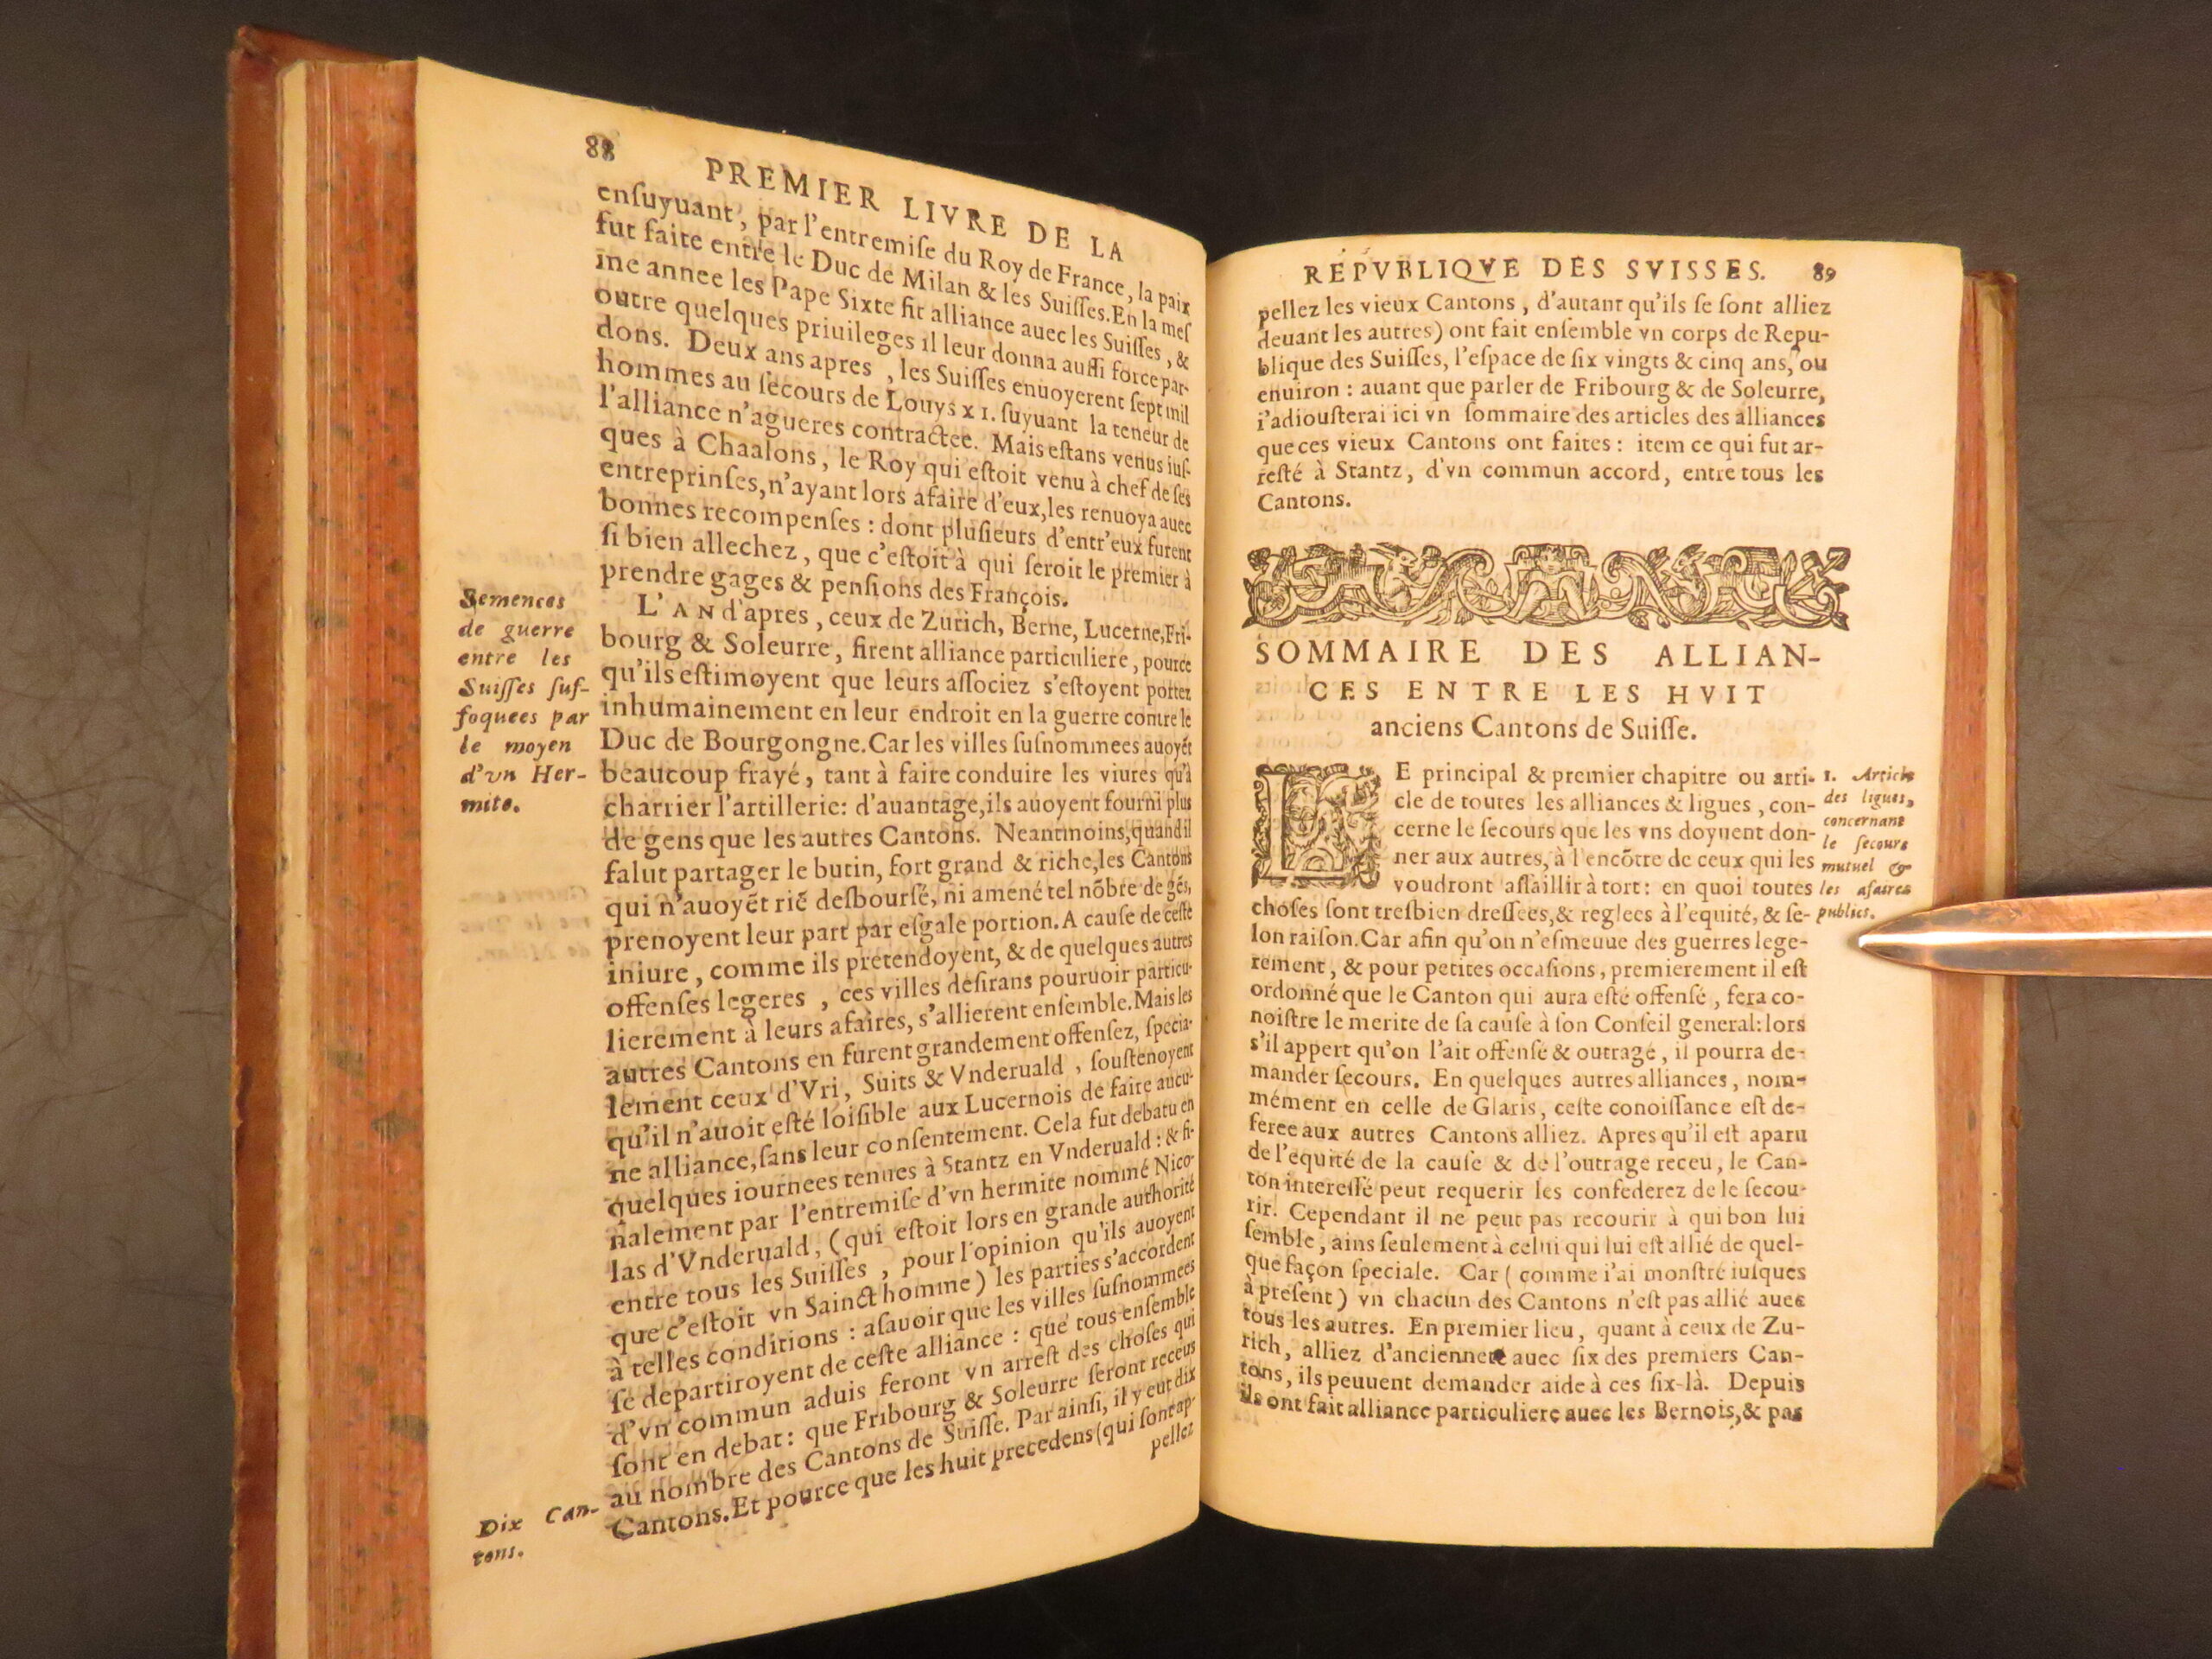 88
PREMIER LIVRE DE LA
enſuyuant, par l'entremiſe du Roy de France, la paix
fut faite entre le Duc de Milan & les Suiſſes. En la meſ
me annee les Pape Sixte fit alliance auec les Suiſſes, &
outre quelques priuileges il leur donna auſſi force par-
dons. Deux ans apres, les Suiſſes enuoyerent ſept mil
hommes au ſecours de Louys XI. ſuyuant la teneur de
l'alliance n'agueres contractee. Mais eſtans venus iuſ-
ques à Chaalons, le Roy qui eſtoit venu à chef de ſes
entreprinſes, n'ayant lors afaire d'eux, les renuoya auec
bonnes recompenſes : dont pluſieurs d'entr'eux furent
ſi bien allechez, que c'eſtoit à qui ſeroit le premier à
prendre gages & penſions des François.
L'AN d'apres, ceux de Zurich, Berne, Lucerne, Fri-
bourg & Soleurre, firent alliance particuliere, pource
qu'ils eſtimoyent que leurs aſſociez s'eſtoyent portez
inhumainement en leur endroit en la guerre contre le
Duc de Bourgongne. Car les villes ſuſnommees auoyẽt
beaucoup frayé, tant à faire conduire les viures qu'à
charrier l'artillerie: d'auantage, ils auoyent fourni plus
de gens que les autres Cantons. Neantmoins, quand il
falut partager le butin, fort grand & riche, les Cantons
qui n'auoyẽt riẽ desbourſé, ni amené tel nõbre de gẽs,
prenoyent leur part par eſgale portion. A cauſe de ceſte
iniure, comme ils pretendoyent, & de quelques autres
offenſes legeres, ces villes deſirans pouruoir particu-
lierement à leurs afaires, s'allierent enſemble. Mais les
autres Cantons en furent grandement offenſez, ſpecia-
lement ceux d'Vri, Suits & Vnderuald, ſouſtenoyent
qu'il n'auoit eſté loiſible aux Lucernois de faire aucu-
ne alliance, ſans leur conſentement. Cela fut debatu en
quelques iournees tenues à Stantz en Vnderuald : & fi-
nalement par l'entremiſe d'vn hermite nommé Nico-
las d'Vnderuald, (qui eſtoit lors en grande authorité
entre tous les Suiſſes, pour l'opinion qu'ils auoyent
que c'eſtoit vn Sainct homme) les parties s'accordent
à telles conditions : aſauoir que les villes ſuſnommees
ſe departiroyent de ceſte alliance : que tous enſemble
d'vn commun aduis feront vn arreſt des choſes qui
ſont en debat : que Fribourg & Soleurre ſeront receus
au nombre des Cantons de Suiſſe. Par ainſi, il y eut dix
Cantons. Et pource que les huit precedens (qui ſont ap-
pellez
Semences
de guerre
entre les
Suiſſes ſuf-
foquees par
le moyen
d'vn Her-
mite.
Dix Can-
tons.
REPVBLIQVE DES SVISSES. 89
pellez les vieux Cantons, d'autant qu'ils ſe ſont alliez
deuant les autres) ont fait enſemble vn corps de Repu-
blique des Suiſſes, l'eſpace de ſix vingts & cinq ans, ou
enuiron : auant que parler de Fribourg & de Soleurre,
i'adiouſterai ici vn ſommaire des articles des alliances
que ces vieux Cantons ont faites : item ce qui fut ar-
reſté à Stantz, d'vn commun accord, entre tous les
Cantons.
SOMMAIRE DES ALLIAN-
CES ENTRE LES HVIT
anciens Cantons de Suiſſe.
LE principal & premier chapitre ou arti-
cle de toutes les alliances & ligues, con-
cerne le ſecours que les vns doyuent don-
ner aux autres, à l'encõtre de ceux qui les
voudront aſſaillir à tort : en quoi toutes
choſes ſont treſbien dreſſees, & reglees à l'equité, & ſe-
lon raiſon. Car afin qu'on n'eſmeuue des guerres lege-
rement, & pour petites occaſions, premierement il eſt
ordonné que le Canton qui aura eſté offenſé, fera co-
noiſtre le merite de ſa cauſe à ſon Conſeil general: lors
s'il appert qu'on l'ait offenſé & outragé, il pourra de-
mander ſecours. En quelques autres alliances, nom-
mément en celle de Glaris, ceſte conoiſſance eſt de-
feree aux autres Cantons alliez. Apres qu'il eſt aparu
de l'equité de la cauſe & de l'outrage receu, le Can-
ton intereſſé peut requerir les confederez de le ſecou-
rir. Cependant il ne peut pas recourir à qui bon lui
ſemble, ains ſeulement à celui qui lui eſt allié de quel-
que façon ſpeciale. Car (comme i'ai monſtré iuſques
à preſent) vn chacun des Cantons n'eſt pas allié auec
tous les autres. En premier lieu, quant à ceux de Zu-
rich, alliez d'ancienneté auec ſix des premiers Can-
tons, ils peuuent demander aide à ces ſix-là. Depuis
ils ont fait alliance particuliere auec les Bernois, & pas
1. Article
des ligues,
concernant
le ſecours
mutuel &
les afaires
publics.